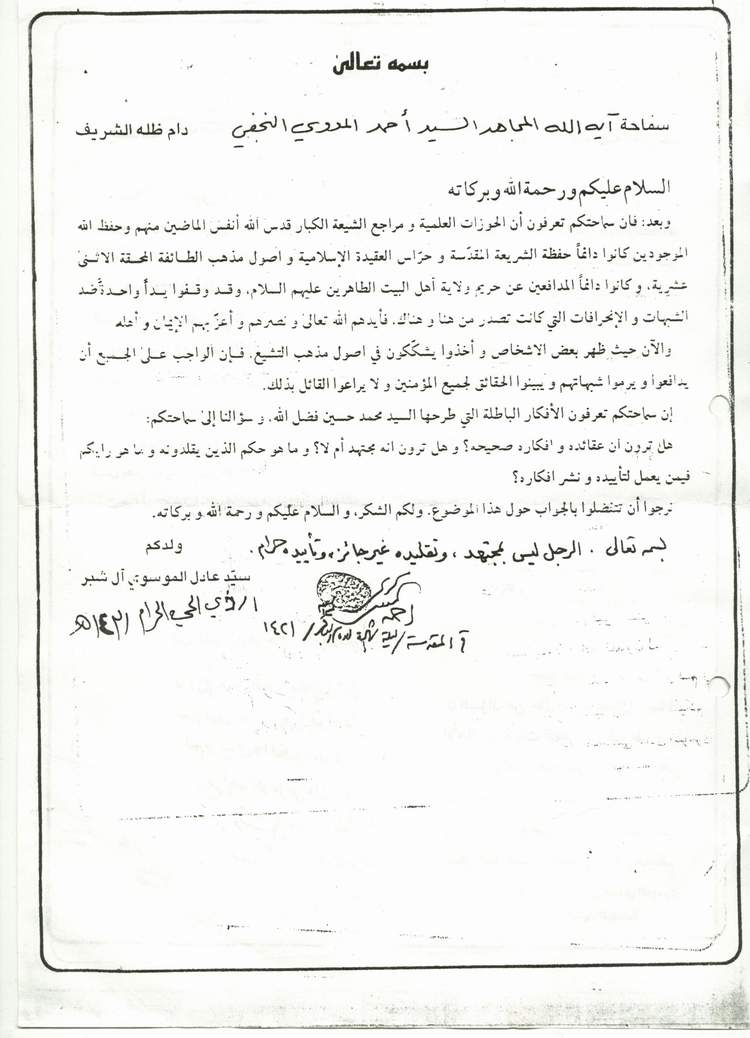 بسمه تعالى
سماحة آية الله المجاهد السيد أحمد المددي النجفي دام ظله الشريف
السلام عليكم ورحمة الله وبركاته
وبعد: فان سماحتكم تعرفون أن الحوزات العلمية و مراجع الشيعة الكبار قدس الله أنفس الماضين منهم وحفظ الله
الموجودين كانوا دائماً حفظة الشريعة المقدّسة و حرّاس العقيدة الإسلامية و اصول مذهب الطائفة المحقة الاثنى
عشرية، و كانوا دائماً المدافعين عن حريم ولاية أهل البيت الطاهرين عليهم السلام، وقد وقفوا يداً واحدةً ضد
الشبهات و الإنحرافات التي كانت تصدر من هنا و هناك، فأيدهم الله تعالى و نصرهم و أعزّ بهم الإيمان و أهله
والآن حيث ظهر بعض الاشخاص و أخذوا يشكّكون في اصول مذهب التشيع، فإن الواجب على الجميع أن
يدافعوا و يرموا شبهاتهم و يبينوا الحقائق لجميع المؤمنين و لا يراعوا القائل بذلك.
إن سماحتكم تعرفون الأفكار الباطلة التي طرحها السيد محمد حسين فضل الله، و سؤالنا إلى سماحتكم:
هل ترون ان عقائده و افكاره صحيحه؟ و هل ترون انه مجتهد أم لا؟ و ما هو حكم الذين يقلدونه و ما هو رايكم
فيمن يعمل لتأييده و نشر افكاره؟
نرجوا أن تتفضلوا بالجواب حول هذا الموضوع، ولكم الشكر، و السلام عليكم و رحمة الله و بركاته.
بسمه تعالى . الرجل ليس بمجتهد ، وتقليده غير جائز، وتأييده حرام .
ولدكم
سيّد عادل الموسوي آل شبر
١٤٢١هـ
١٤٢١